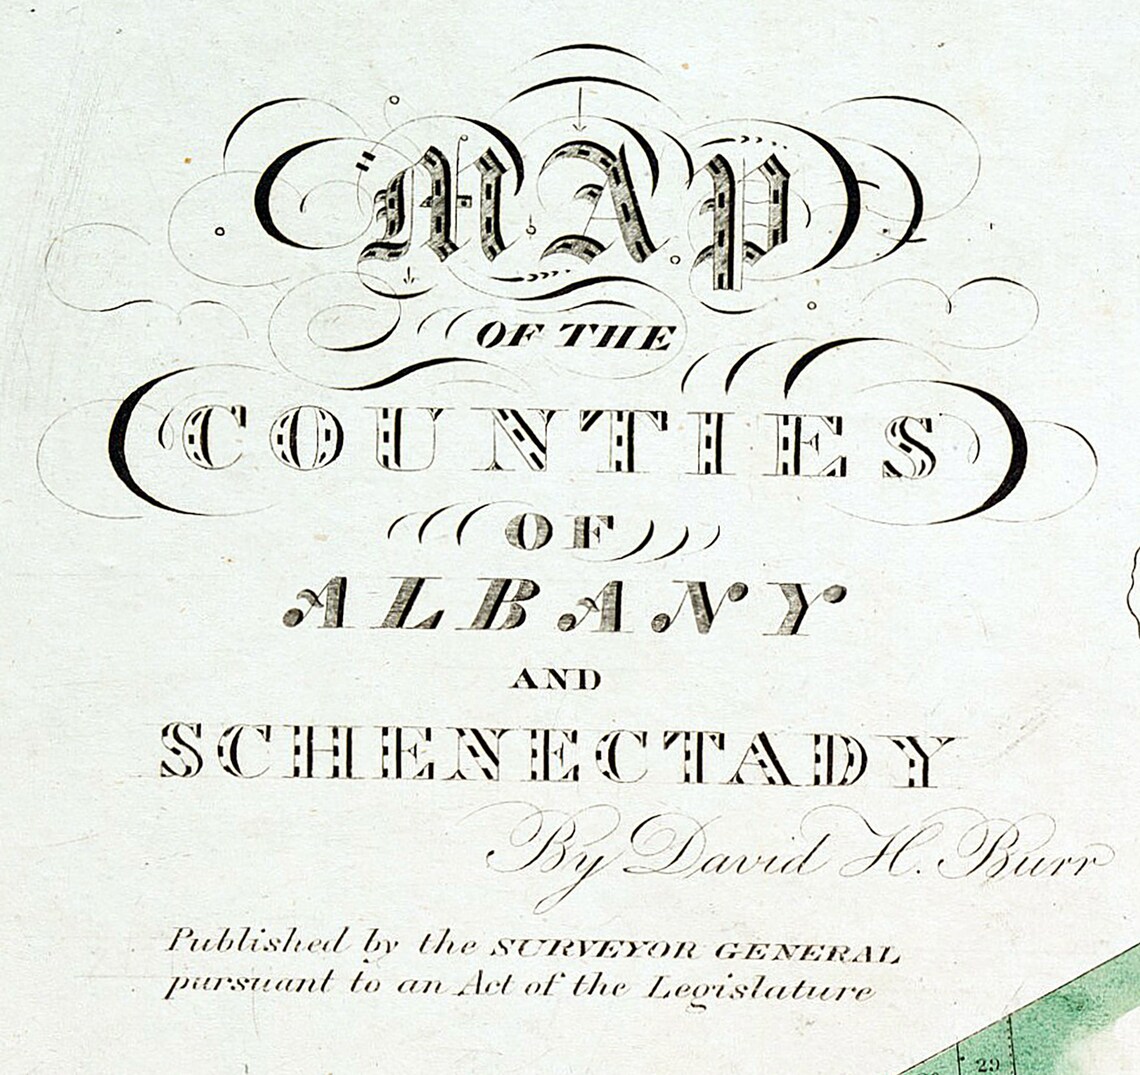 MAP
OF THE
COUNTIES
OF
ALBANY
AND
SCHENECTADY
By David H. Burr
Published by the SURVEYOR GENERAL
pursuant to an Act of the Legislature
29